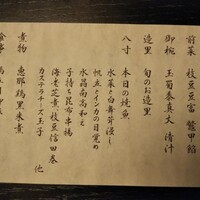 前菜 枝豆豆富 鼈甲餡
御椀 玉蜀黍真丈 清汁
造里 旬のお造里
八寸 本日の焼魚
水菜と白舞茸浸し
帆立とインカの目覚め
水晶南高和え
子持ち昆布串揚
海老芝煮、枝豆信田巻
カステラチーズ玉子 他
煮物 恵那鶏黒朱煮